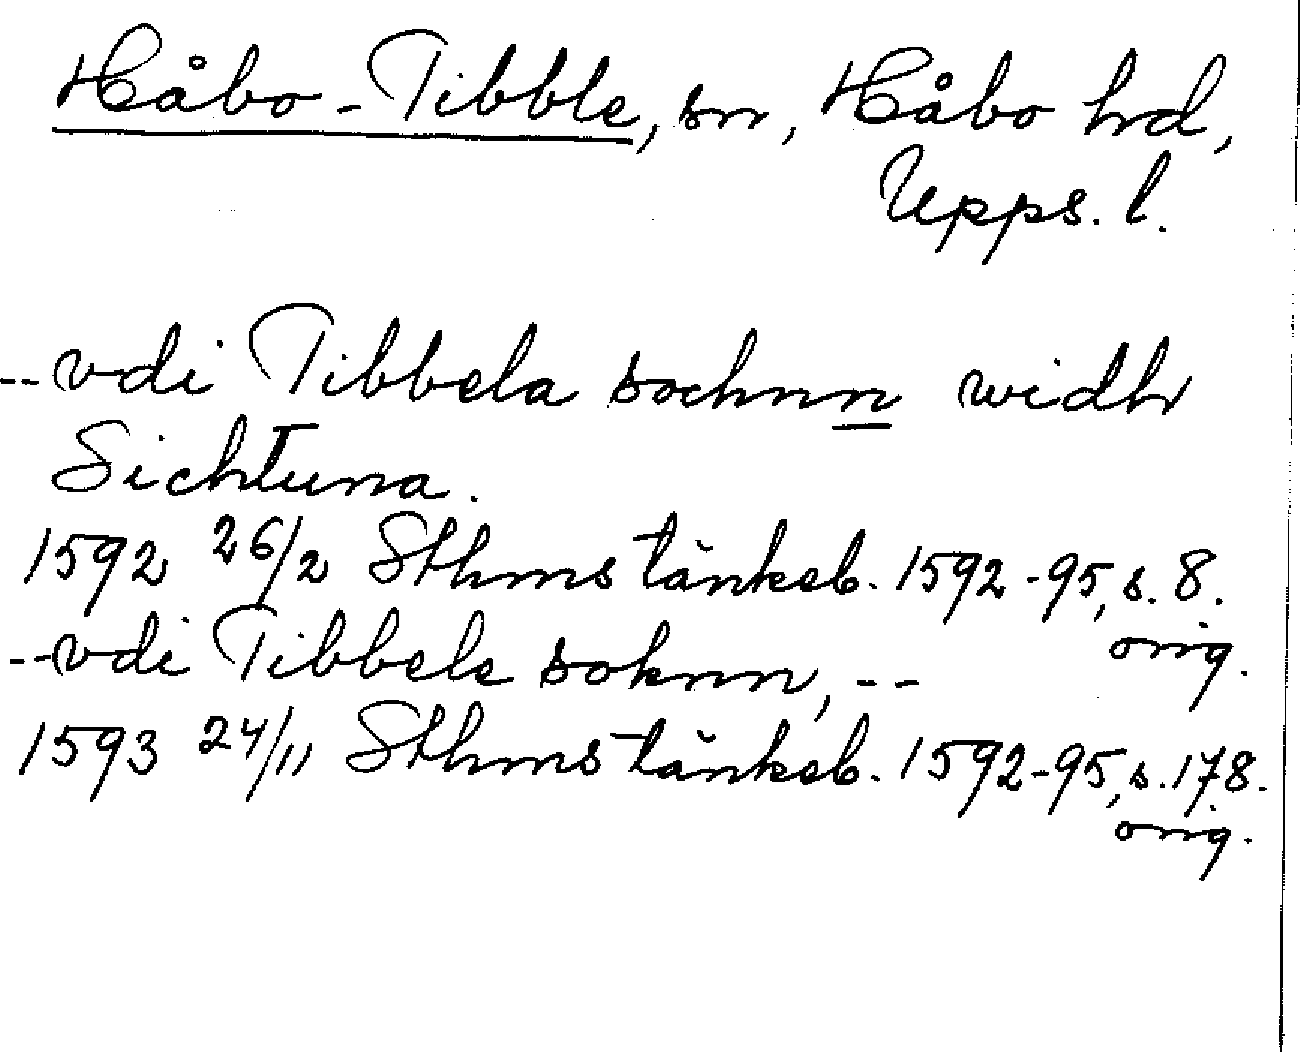 Håbo-Tibble, sn, Håbo hd,
Upps. l.
--vdi Tibbela sochnn widh
Sichtuna.
1592 26/2 Sthms tänkeb. 1592-95, s. 8.
orig.
--vdi Tibbele soknn, --
1593 24/11 Sthms tänkeb. 1592-95, s. 178.
orig.